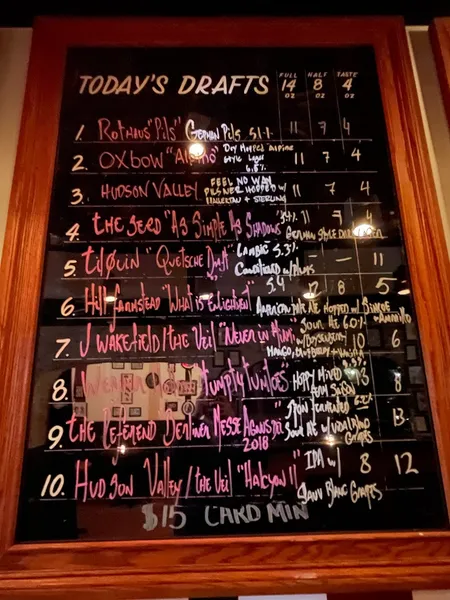 TODAY'S DRAFTS
FULL HALF TASTE
14 8 4
OZ OZ OZ
1. Rothaus "Pils" German Pils 5.1% 11 7 4
2. OXBOW "Alpino" Dry Hopped Alpine 11 7 4
Style Lager
6.5%
3. HUDSON VALLEY FEEL NO WAY 11 7 4
PILSNER HOPPED w/
+ STERLING
4. THE SEED "AS SIMPLE AS SHADOWS" 11 7
GERMAN STYLE
5. Tilquin "Quetsche Draft" LAMBIC 5.3% — — 11
w/ Plums
6. Hill Farmstead "WHAT IS ENLIGHTENMENT" 5.4 8 5
AMERICAN PALE ALE HOPPED w/ SIMCOE
+ AMARILLO
7. J WAKEFIELD/THE VEIL "NEVER IN" SOUR ALE 6.0% 10 6
MANGO,
8. HOPPY 8
9. THE REFEREND "Berliner Messe Agnus Dei" 13
2018
SOUR ALE
GRAPES
10. HUDSON VALLEY/THE VEIL "HALCYON II" IPA w/ 8 12
SAUV BLANC GRAPES
$15 CARD MIN